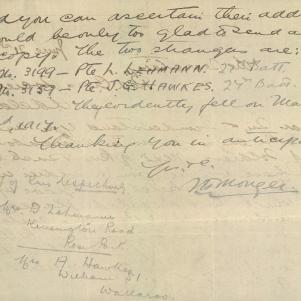 d you can ascertain their add
ould be only too glad to send a
copy. The two strangers are:
No. 3199 – Pte L. LEHMANN. 27th Batt.
No. 3159 – Pte J. G. HAWKES. 27th Batt.
They evidently fell on Ma
1917.
Thanking you in anticip
Yrs.
of
Mrs. D Lehmann
Kensington Road
Rose Park
Mrs A Hawkes
William
Wallaroo.